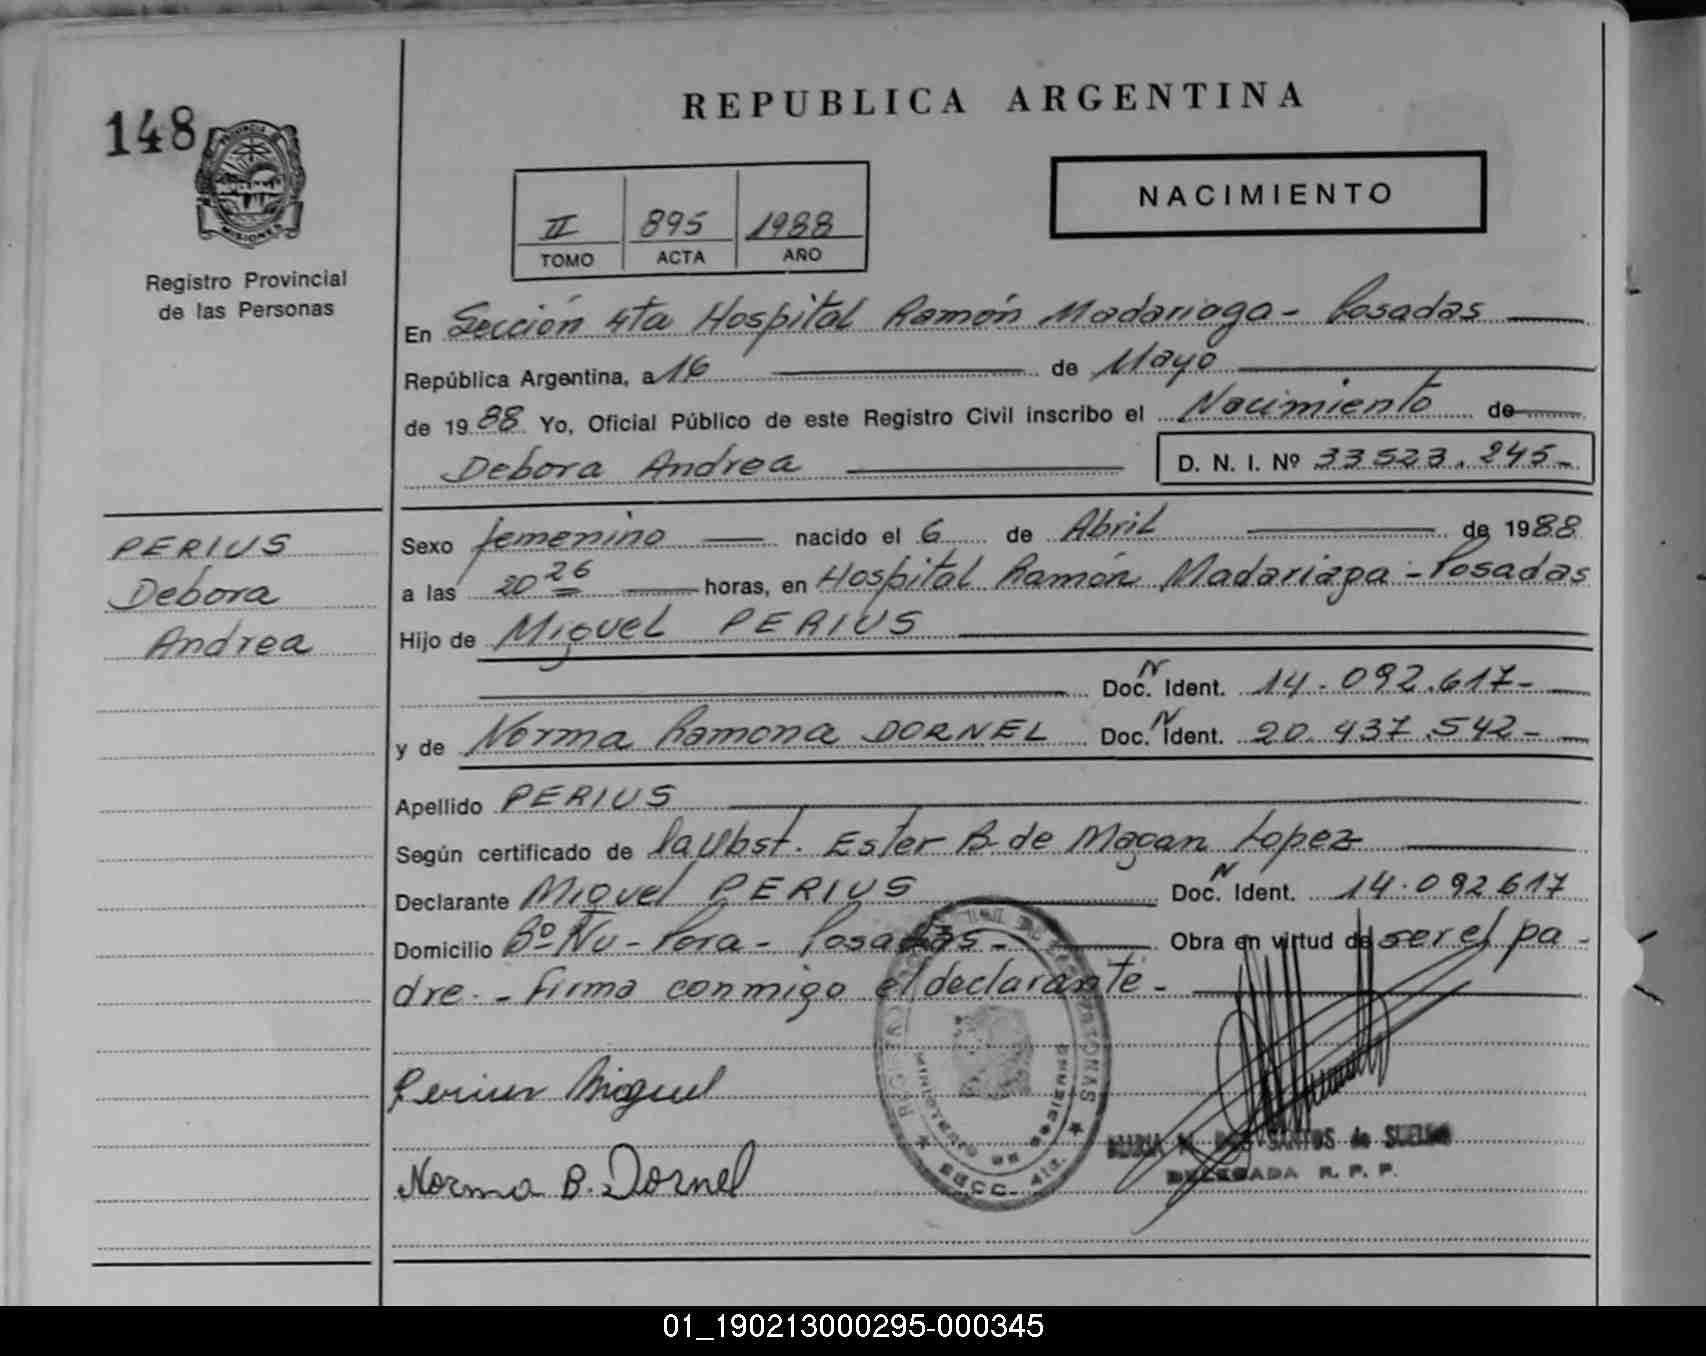 REPUBLICA ARGENTINA
148
PROVINCIA DE
MISIONES
Registro Provincial
de las Personas
NACIMIENTO
II 895 1988
TOMO ACTA AÑO
En Sección 4ta Hospital Ramón Madariaga - Posadas
República Argentina, a 16 de Mayo
de 1988 Yo, Oficial Público de este Registro Civil inscribo el Nacimiento de
Debora Andrea D. N. I. Nº 33523.245-
PERIUS
Debora
Andrea
Sexo femenino nacido el 6 de Abril de 1988
a las 20 26 horas, en Hospital Ramón Madariaga - Posadas
Hijo de Miguel PERIUS
Doc. N Ident. 14.092.617-
y de Norma Ramona DORNEL Doc. N Ident. 20.437.542-
Apellido PERIUS
Según certificado de la Obst. Ester B. de Magan Lopez
Declarante Miguel PERIUS Doc. N Ident. 14.092617
Domicilio Bº Ñu-Pora - Posadas - Obra en virtud de ser el pa-
dre. - Firma conmigo el declarante -
Perius Miguel
Norma B. Dornel
SECC. 4ta.
SANTOS de SUELDO
DELEGADA R. P. P.
01_190213000295-000345